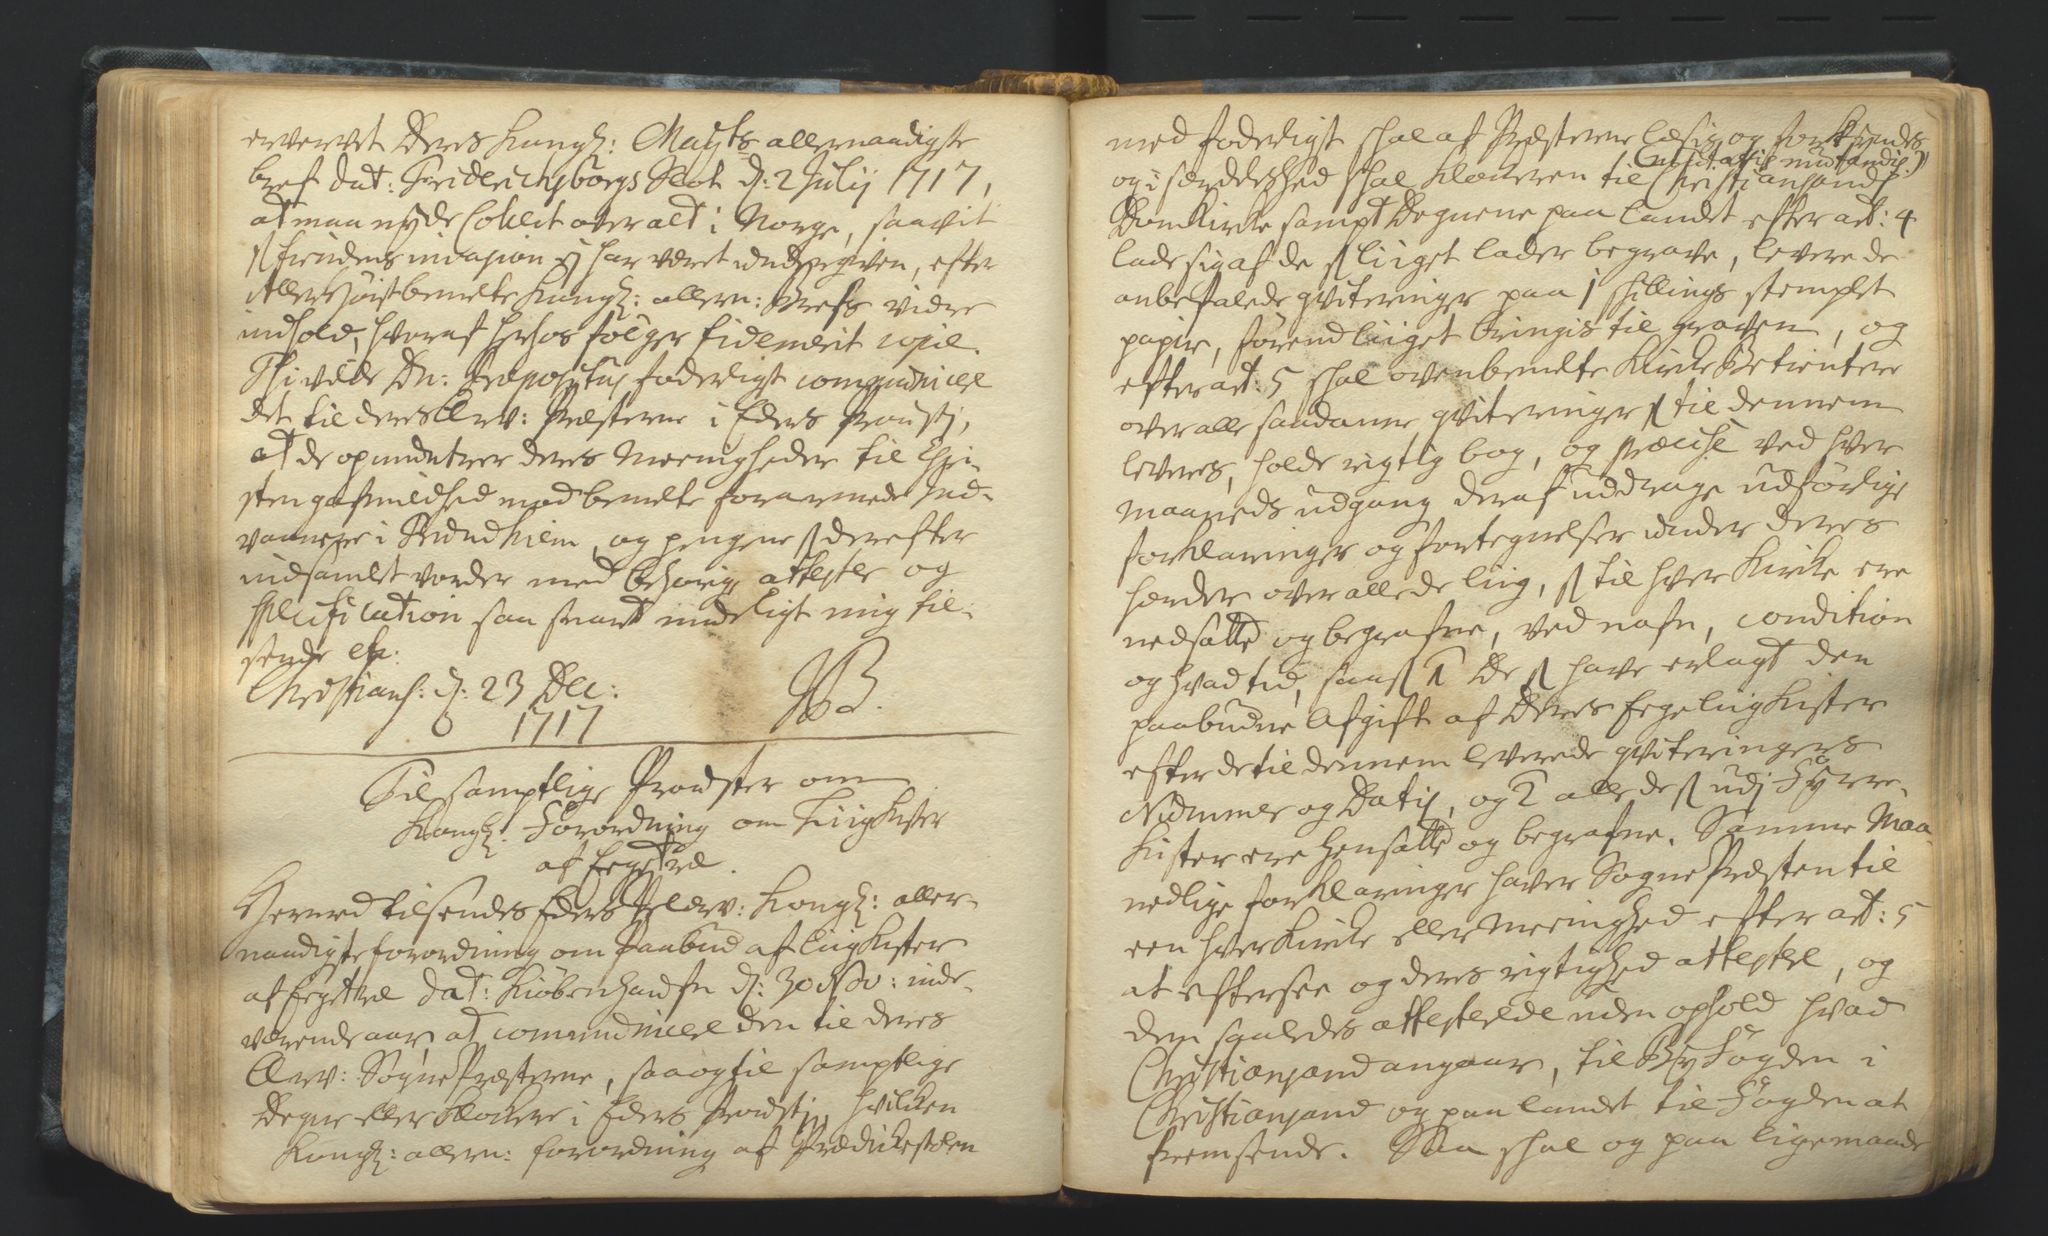 erversvet Deres Kongl: Mayts allernaadigste
bref dat: Friderichsborgs Slot d: 2 Julij 1717,
at maa nyde Collect over alt i Norge, saavit
fiendens invasion ej har været undergiven, efter
Allerhøistbemelte Kongl: allern: brefs videre
indhold, hvoraf herhos følger fidemerit copie.
Thi vilde Dn: Præpositus foderligst communicere
det til deres Erv: Præsterne i Eders Proustj,
at de opmuntrer deres Meenigheder til Chri-
sten gafmildhed mod bemelte forarmede Ind-
vaanere i Trundhiem, og pengene derefter
indsamlet vorder med behørige atteste og
specification saa snart mueligt mig til-
sende etc:
Christians: d: 23 Dec:
1717
Til samptlige Proufster om
Kongl: Forordning om Liigkister
af Eegetræ.
Herved tilsendes Eders Velærv: Kongl: aller-
naadigste forordning om Paabud af liigkister
af Eegetræ dat: Kiøbenhaufn d: 30 Nov: inde-
værende aar, at communicere den til deres
Ærv: Sogne Præsterne, saa og til samptlige
Degne eller Klockere i Eders Proustj, hvilcken
Kongl: allern: forordning af Prædickestolen
med foderligst skal af Præsterne læsis og forkyndes
(mutatis mutandis)
og i særdeleshed skal Klockeren til Christiansands
Domkircke sampt Degnene paa landet efter art: 4
lade sig af de liiget lader begrave, levere de
anbefalede qviteringer paa 1 skillings stemplet
papir, førend liiget bringis til graven, og
efter art: 5 skal ovenbemelte Kircke Betientere
over alle saadanne qviteringer til dennem
leveres, holde rigtig bog, og præcise ved hver
maaneds udgang deraf uddrage udførlige
forklaringer og fortegnelser under deres
hænder over alle de liig, til hver Kircke ere
nedsatte og begrafne, ved nafn, condition
og hvad tid, saa 1 De have erlagt den
paabudne Afgift af Deres Eege liigkister
efter de til dennem leverede qviteringers
Nummer og Datis, og 2 alle de udj Fyrre-
kister ere hensatte og begrafne. Samme Maa-
nedlige forklaringer haver Sogne Præsten til
een hver Kircke eller Meenighed efter art: 5
at eftersee og deres rigtighed attestere, og
dem saaledes attesterede uden ophold hvad
Christiansand angaar, til Byfogden i
Christiansand og paa landet til Fogden at
fremsende. Saa skal og paa lige maade